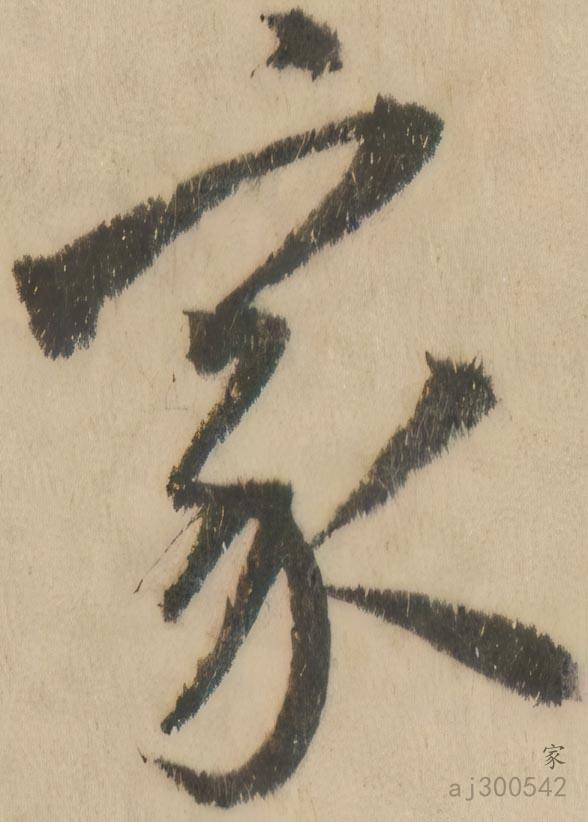 家
家
aj300542